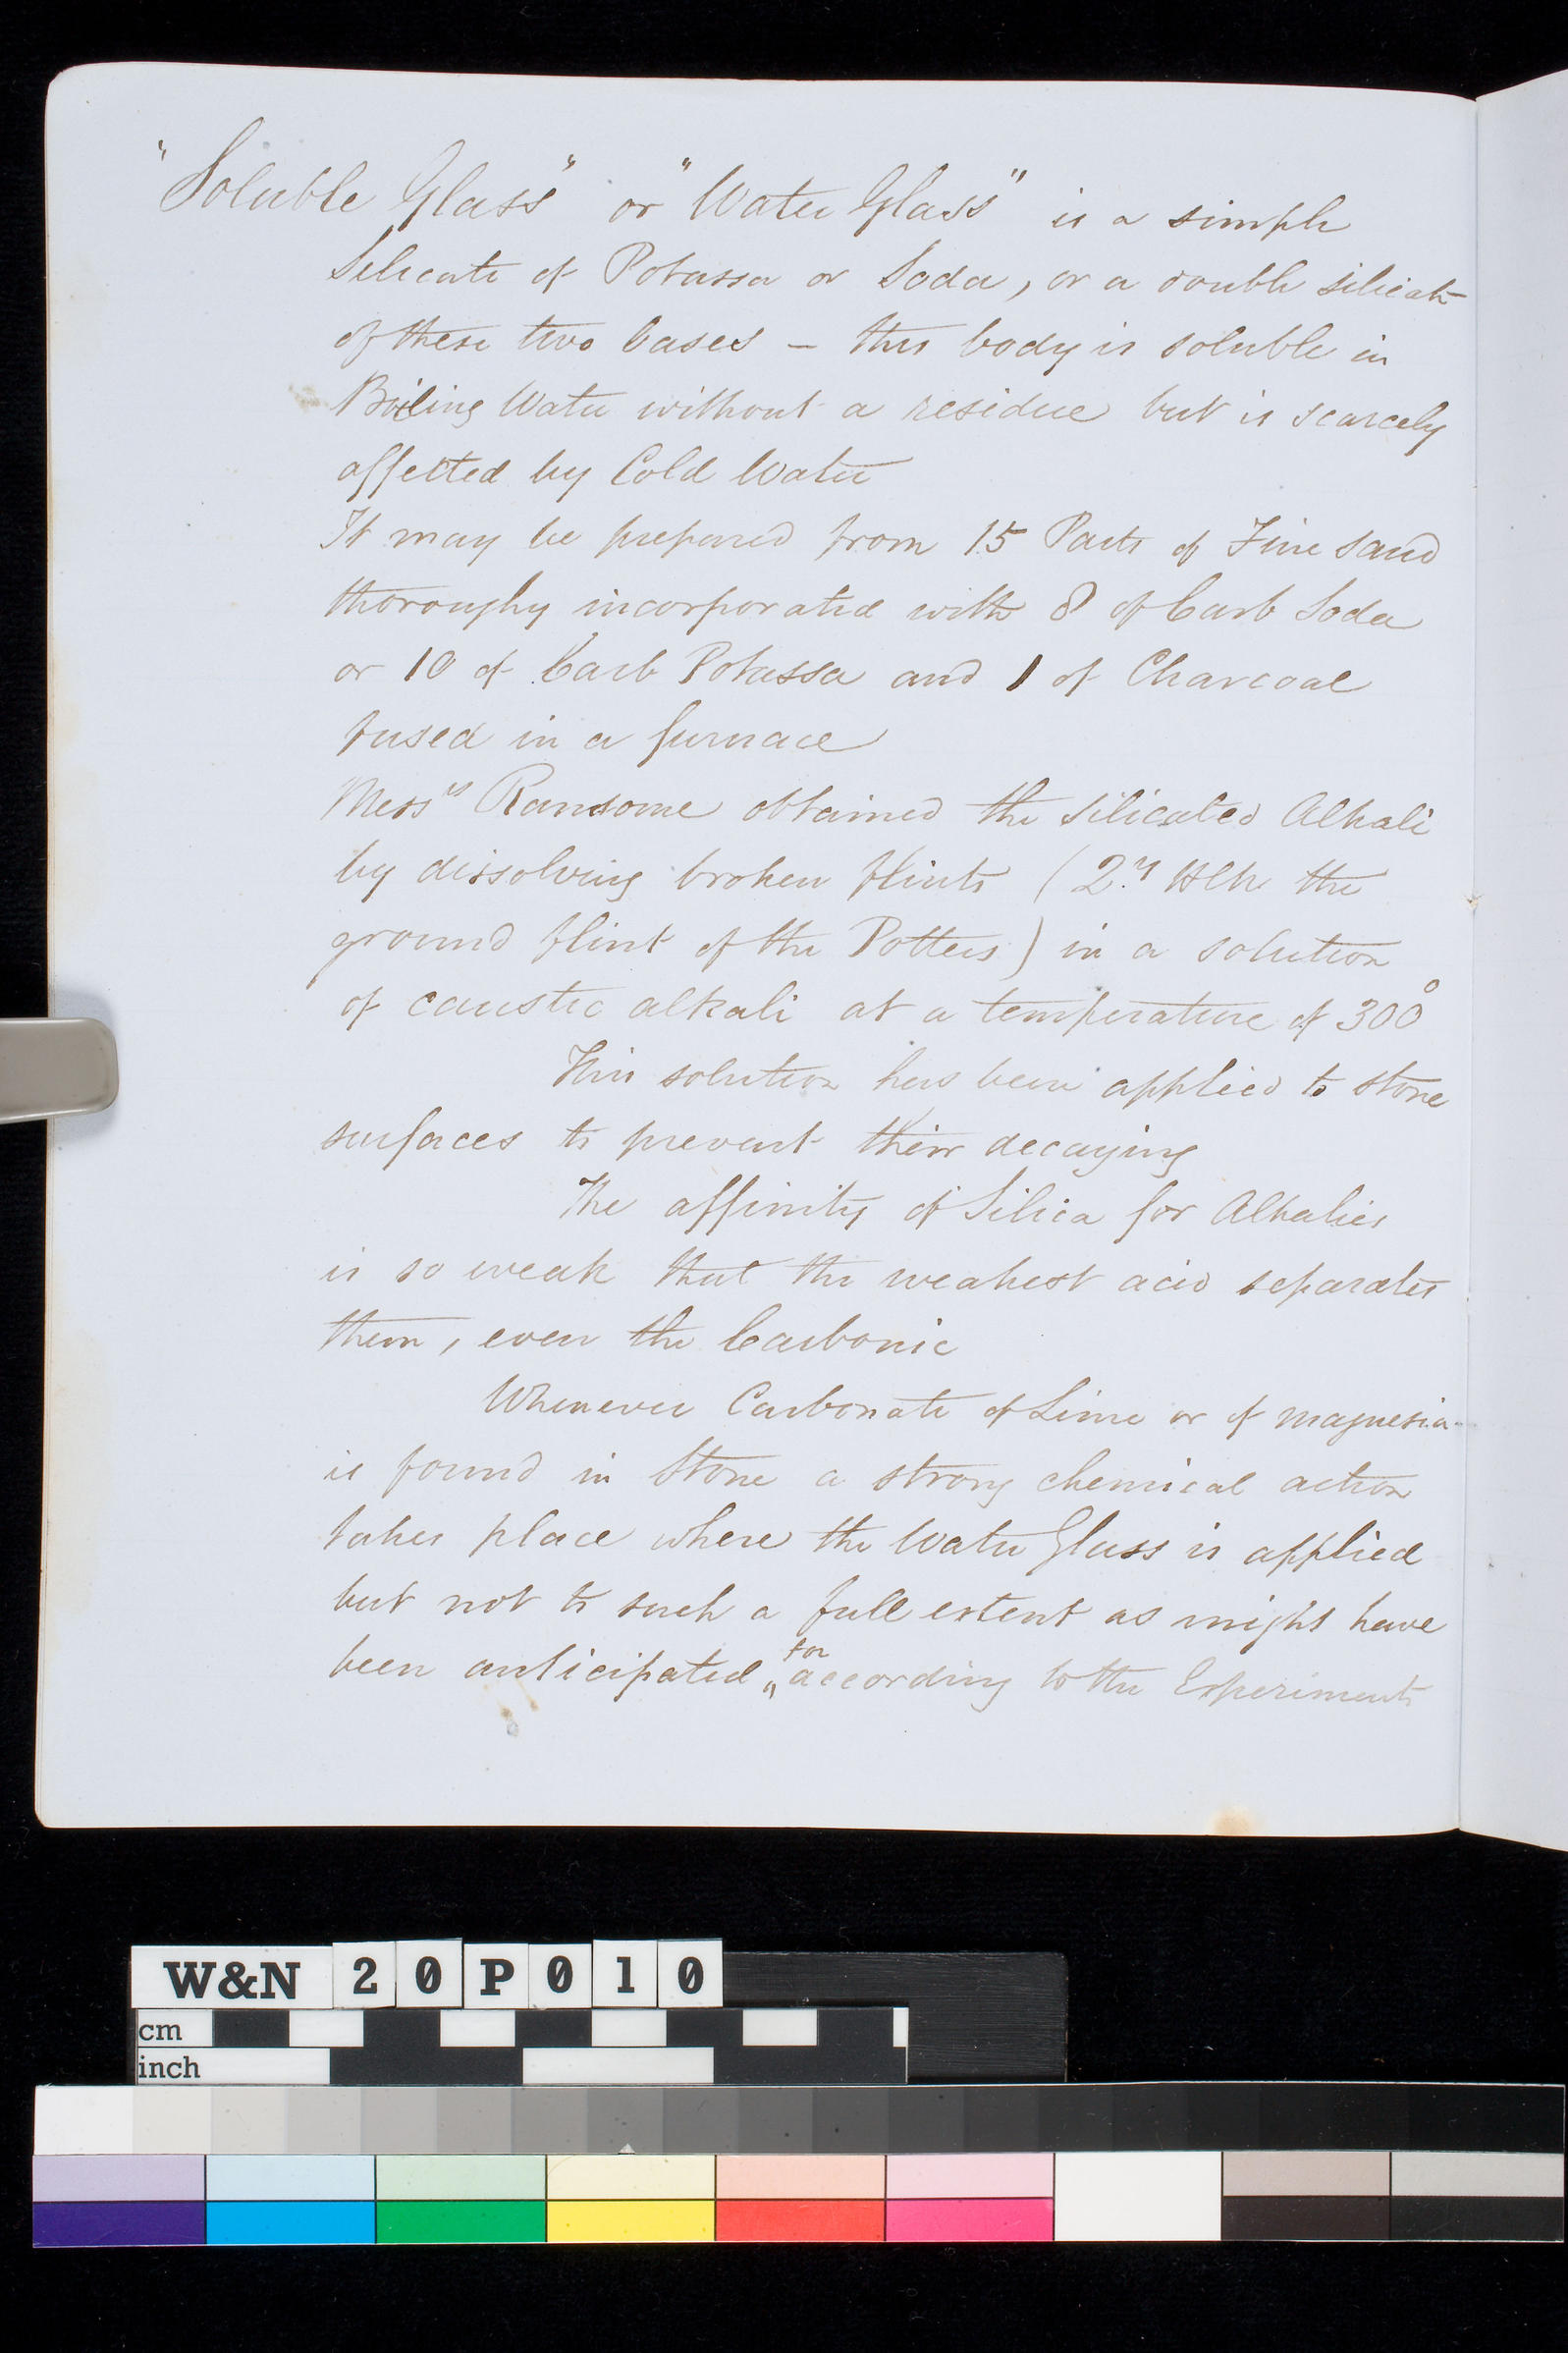 "Soluble Glass" or "Water Glass" is a simple
Silicate of Potassa or Soda, or a double silicate
of these two bases – this body is soluble in
Boiling Water without a residue but is scarcely
affected by Cold Water
It may be prepared from 15 Parts of Fine Sand
thoroughy incorporated with 8 of Carb Soda
or 10 of Carb Potassa and 1 of Charcoal
fused in a furnace
Mess^rs Ransome obtained the silicated Alkali
by dissolving broken flints ( the
ground flint of the Potters) in a solution
of caustic alkali at a temperature of 300°
This solution has been applied to stone
surfaces to prevent their decaying
The affinity of Silica for Alkalies
is so weak that the weakest acid separates
them, even the Carbonic
Whenever Carbonate of Lime or of Magnesia
is found in Stone a strong chemical action
takes place where the Water Glass is applied
but not to such a full extent as might have
been anticipated, for according to the Experiments
W&N 20P010
cm
inch